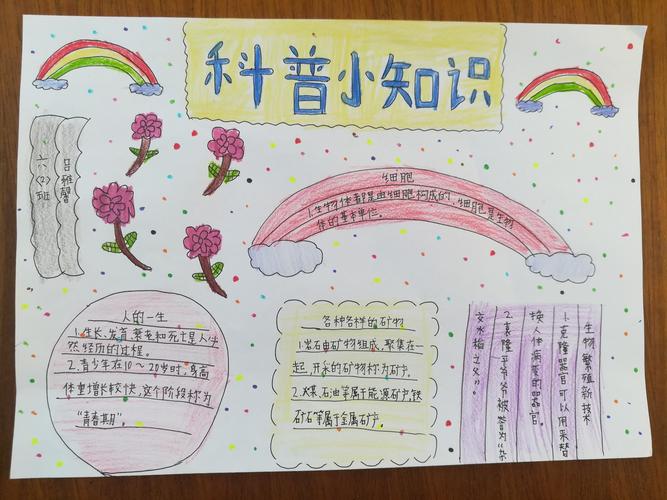 科普小知识
六(2)班
吕雅馨
细胞
1.生物体都是由细胞构成的,细胞是生物
体的基本单位。
人的一生
1.生长、发育、衰老和死亡是人必
然经历的过程。
2.青少年在10~20岁时,身高
体重增长较快,这个阶段称为
“青春期”
各种各样的矿物
1.岩石由矿物组成,聚集在一
起,开采的矿物称为矿产。
2.煤、石油等属于能源矿产,铁
矿石等属于金属矿产。
生物繁殖新技术
1.克隆器官可以用来替
换人体病变的器官。
2.袁隆平爷爷被誉为“杂
交水稻之父”。